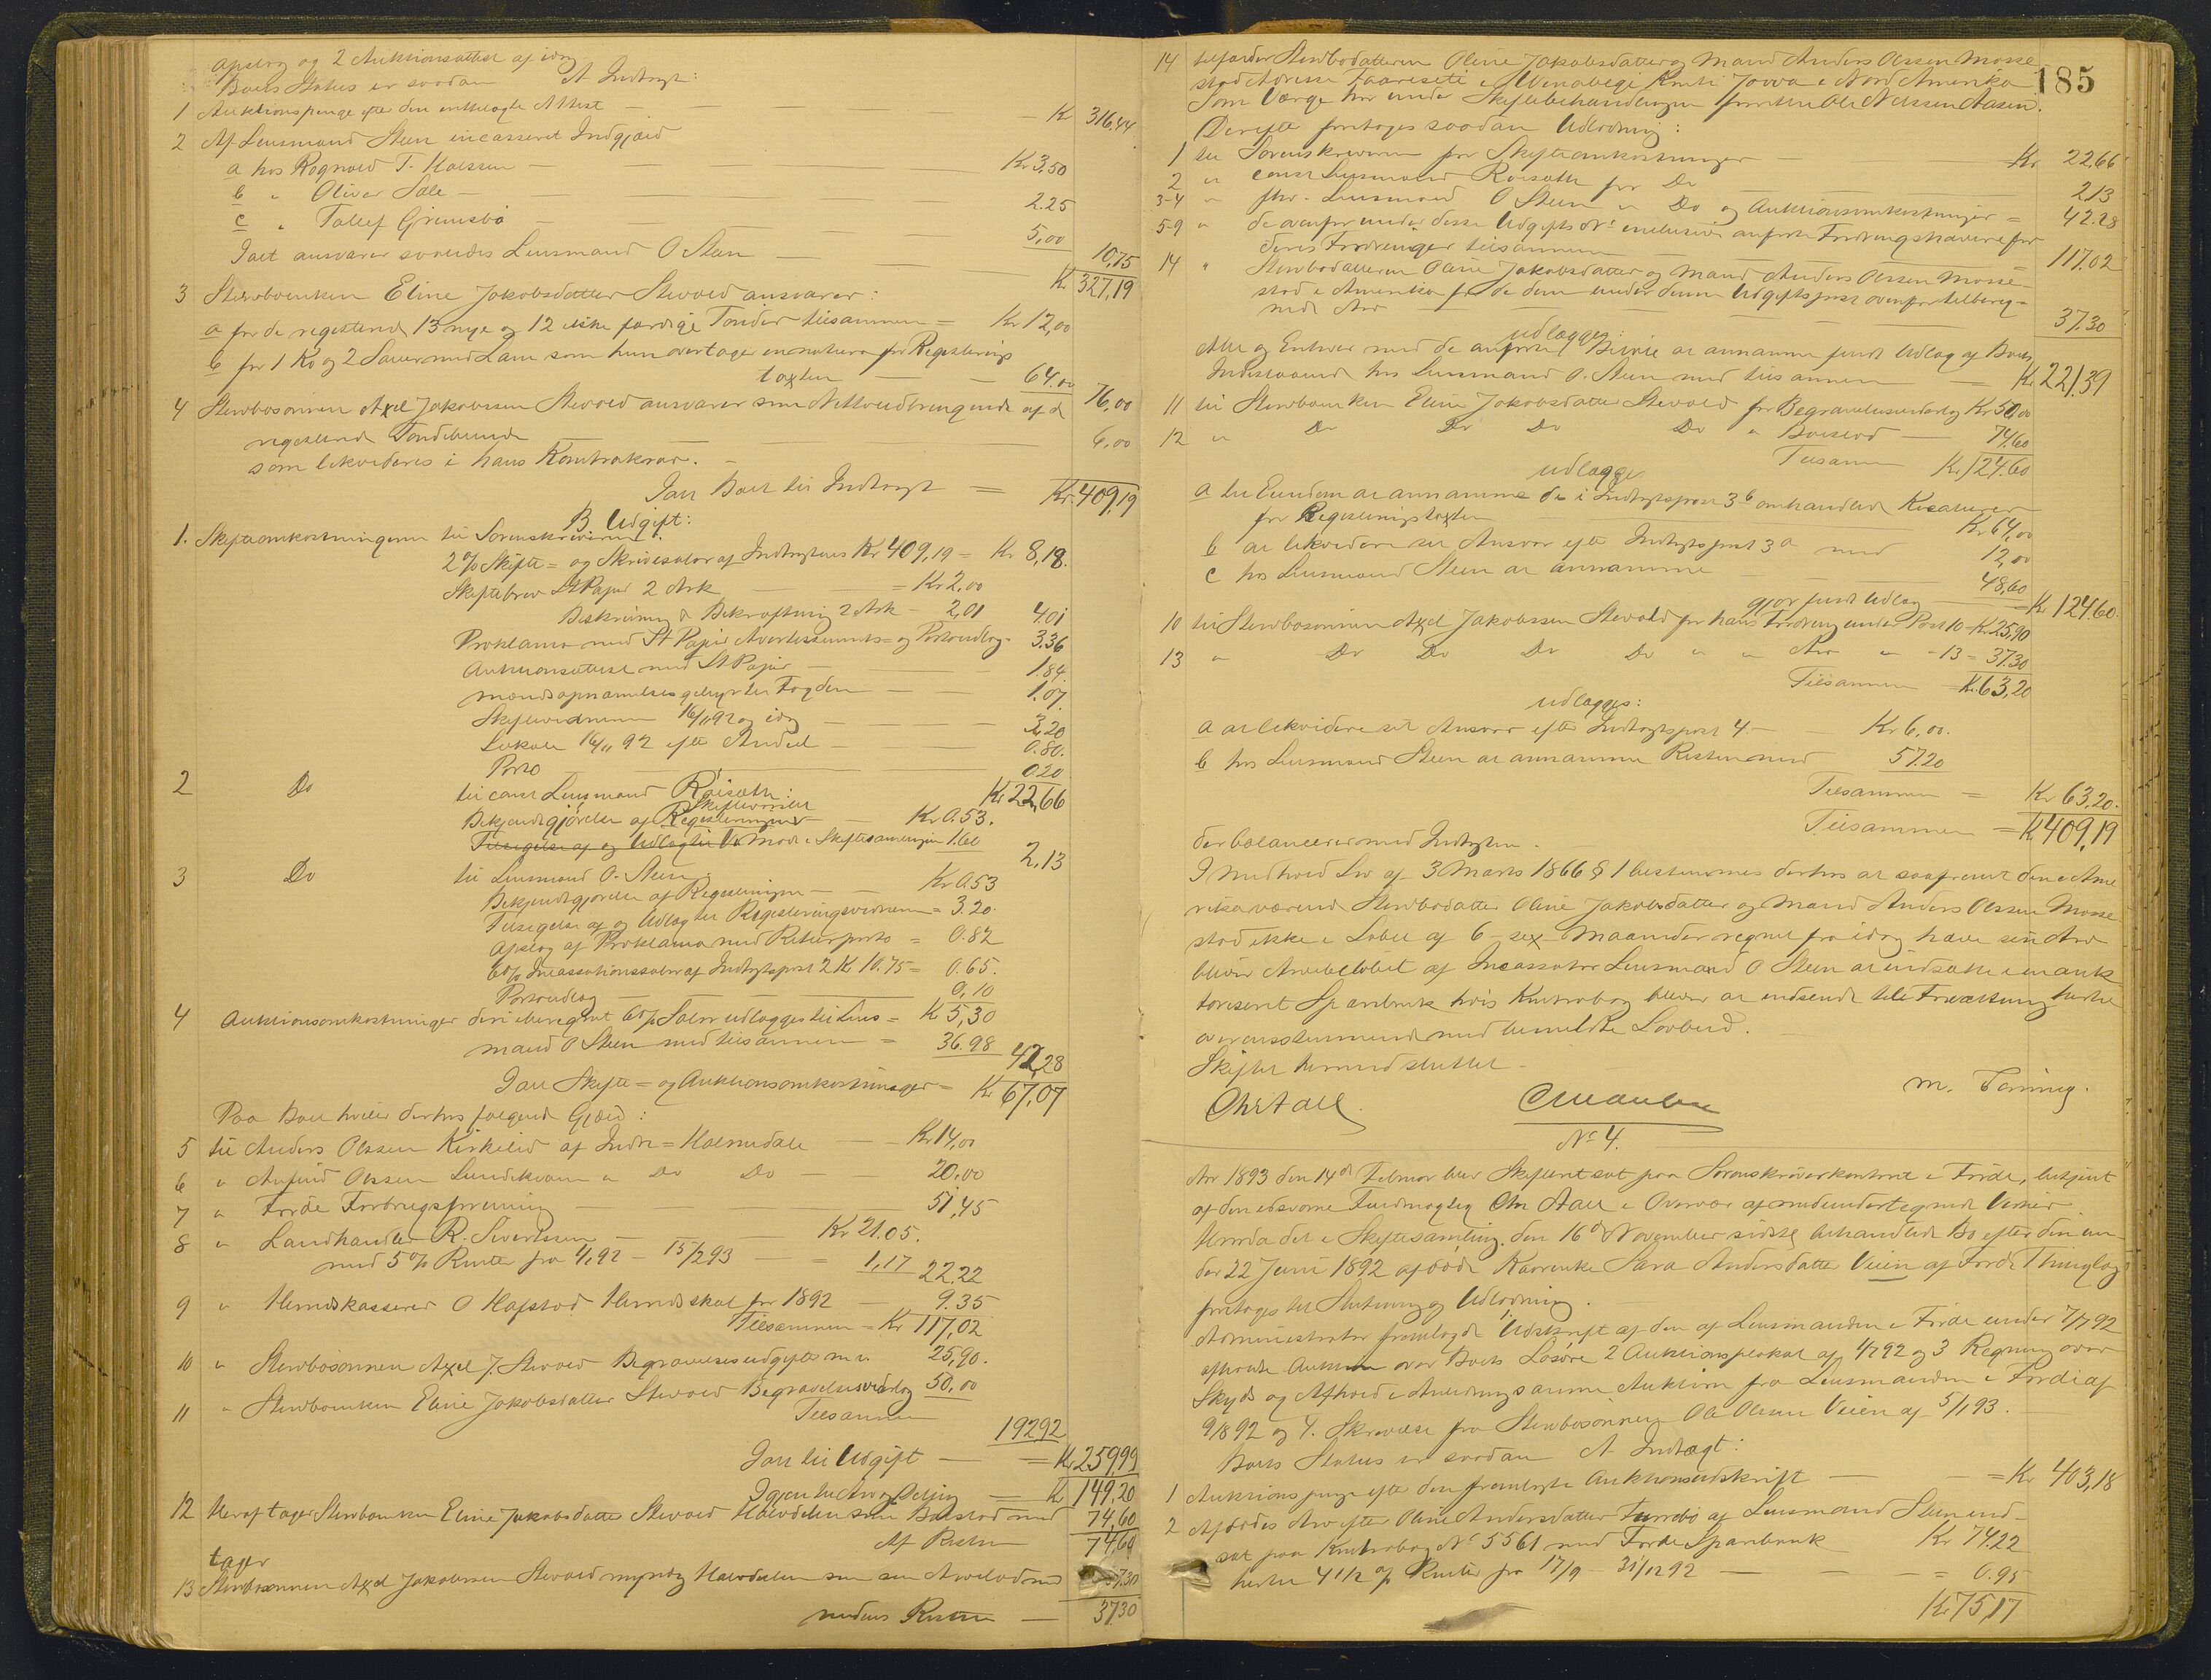 Afslag og 2 Auktionsattest af idag
Boets Status er saadan A Indtægt:
1 Auktionspenge efter den vedlagte Attest — Kr 316,44
2 Af Lensmand Steen incasseret Indgjæld
a hos Rognald T. Halssen — Kr 3,50
b " Oliver Sæle — 2.25
c " Tollef Grimsbø — 5,00
Ialt ansvarer saaledes Lensmand O Steen — 10,75
Kr 327,19
3 Stervboenken Eline Jakobsdatter Stevold ansvarer:
a for de registrerede 13 nye og 12 ikke færdige Tønder tilsammen = Kr 12,00
b for 1 Ko og 2 Sauer med Lam som hun overtager in natura for Registrerings
taxten — 64.00 76,00
4 Stervbosønnen Axel Jakobssen Stevold ansvarer som Nettoudbringende af d
registrerede Tøndebunde 6,00
som likvideres i hans Kontrakrav.
Ialt Boet til Indtægt = Kr. 409,19
B Udgift:
1. Skifteomkostningerne til Sorenskriveren:
2 % Skifte- og Skriversalær af Indtægtens Kr 409,19 = Kr 8,18.
Skiftebrev St Papir 2 Ark = Kr 2,00
Beskrivning & Bekræftning 2 Ark - 2,01 4.01
Proklama med St Papir Avertissements- og Portoudlæg - 3.36
Auktionsattest med St Papir — 1.84
mandsopnævnelsesgebyr til Fogden — 1.07.
Skiftevidnerne 16/11 92 og idag — 3,20
Lokale 16/11 92 efter Andeel — 0.80.
Porto 0.20
Kr 22,66
2 Do til const Lensmand Røisæth:
Skiftevarslet
Bekjendtgjørelse af Registreringen — Kr 0.53.
Tilsigelse af og Udlæg til Vi Møde i Skiftesamlingen 1.60 2,13
3 Do til Lensmand O. Steen:
Bekjendtgjørelse af Registreringen — Kr 0.53
Tilsigelse af og Udlæg til Registreringsvidnerne = 3.20.
Afslag af Proklama med Returporto = 0.82
6 % Incassationssalær af Indtægtspost 2 Kr 10.75 = 0.65.
Portoudlæg — 0,10
Kr 5,30
4 Auktionsomkostninger deri iberegnet 6 % Salær udlægges til Lens =
mand O Steen med tilsammen = 36.98 42,28
Ialt Skifte- og Auktionsomkostninger = Kr 67,07
Paa Boet hviler derhos følgende Gjæld:
5 til Anders Olssen Kirkelid af Indre-Holmedale — Kr 14,00
6 " Anfind Olssen Lundekvam " Do Do — 20.00
7 " Førde Forbrugsforening — 51,45
8 " Landhandler R. Sivertssen — Kr 21.05.
med 5 % Renter fra 1/1 92 - 15/2 93 = 1,17 22,22
9 " Herredskasserer O Hafstad Herredsskat for 1892 — 9.35
Tilsammen = Kr 117,02
10 " Stervbosønnen Axel J. Stevold Begravelsesudgifter m.v. 25,90.
11 " Stervboenken Eline Jakobsdatter Stevold Begravelsesvederlag 50.00
Tilsammen 192,92
Ialt til Udgift — = Kr 259,99
Igjen til Arv og Deling = Kr 149,20
12 Heraf tager Stervboenken Eline Jakobsdatter Stevold Halvdelen som Boeslod med 74,60
Af Resten 74,60
tager
13 Stervbosønnen Axel Jakobssen Stevold myndig Halvdelen som sin Arvelod med 37.30
medens Resten — 37,30
185
14 tilfalder Stervbodatteren Oline Jakobsdatter og Mand Anders Olssen Mosse
stad Adresse i Winabegi Kunti Jowa i Nord Amerika
Som Værge har under Skiftebehandlingen Ole Nilssen Aasen.
Derefter foretages saadan Udlodning:
1 til Sorenskriveren for Skifteomkostninger — Kr 22,66
2 " const Lensmand Røisæth for Do — 2,13
3-4 " fhv. Lensmand O Steen " Do og Auktionsomkostninger = 42.28
5-9 " de ovenfor under disse Udgifts No inclusive anførte Fordringshavere for
deres Fordringer tilsammen — 117,02
14 " Stervbodatteren Oline Jakobsdatter og Mand Anders Olssen Mosse
stad i Amerika for de dem under denne Udgiftspost ovenfor tilbereg-
nede Arv — 37.30
udlægges:
Alle og Enhver med de anførte Beløb at annamme fuldt Udlæg af Boets
Indestaaende hos Lensmand O. Steen med tilsammen = Kr 221,39
11 til Stervboenken Eline Jakobsdatter Stevold for Begravelsesvederlag Kr 50,00
12 " Do Do Do Do " Boeslod — 74,60
Tilsammen Kr. 124,60
udlægges
a til Eiendom at annamme de i Indtægtspost 3 b omhandlede Kreaturer
for Registreringstaxten Kr 64,00
b at likvidere sit Ansvar efter Indtægtspost 3 a med 12,00
c hos Lensmand Steen at annamme 48,60
gjør fuldt Udlæg = Kr 124.60.
10 til Stervbosønnen Axel Jakobssen Stevold for hans Fordring under Post 10 = Kr. 25,90
13 " Do Do Do Do " " Arv " - 13 = 37.30
Tilsammen = Kr. 63,20
udlægges:
a at likvidere sit Ansvar efter Indtægtspost 4 — Kr 6,00.
b hos Lensmand Steen at annamme Resten med 57.20
Tilsammen = Kr 63,20.
Tilsammen = Kr 409,19
der balancerer med Indtægten.
I Medhold Lov af 3 Marts 1866 § 1 bestemmes derhos at saafremt den i Ame
rika værende Stervbodatter Oline Jakobsdatter og Mand Anders Olssen Mosse
stad ikke i Løbet af 6 - sex - Maaneder regnet fra idag hæve sin Arv
bliver Arvebeløbet af Incassator Lensmand O Steen at indsætte i en auk
toriseret Sparebank hvis Kontrabog bliver at indsende til Forvaltning
overensstemmende med bemeldte Lovbud.
Skiftet hermed sluttet.
Chr Aall.
M. Tønning.
No 4.
Aar 1893 den 14de Februar blev Skifteret sat paa Sorenskriverkontoret i Førde, betjent
af den edsvorne Fuldmægtig Chr Aall i Overvær af medundertegnede Vidner
Hvorda det i Skiftesamling den 16de November sidstl behandlede Bo efter den un-
der 22 Juni 1892 afdøde Kaarenke Sara Andersdatter Veien af Førde Thinglag
foretoges til Slutning og Udlodning.
Administrator fremlagde 1, Udskrift af den af Lensmanden i Førde under 7/7 92
afholdte Auktion over Boets Løsøre 2 Auktionsplakat af 4/7 92 og 3 Regning over
Skyds og Afhold i Anledning samme Auktion fra Lensmanden i Førde af
9/8 92 og 4. Skrivelse fra Stervbosønnen Ole Olssen Veien af 5/1 93.
Boets Status er saadan A Indtægt:
1 Auktionspenge efter den fremlagte Auktionsudskrift — = Kr 403,18
2 Afdødes Arv efter Oline Andersdatter Furrebø af Lensmand Steen ind-
sat paa Kontrabog No 5561 med Førde Sparebank Kr 74.22
hertil 4 1/2 % Renter fra 17/9 - 31/12 92 — = 0.95
Kr 75,17